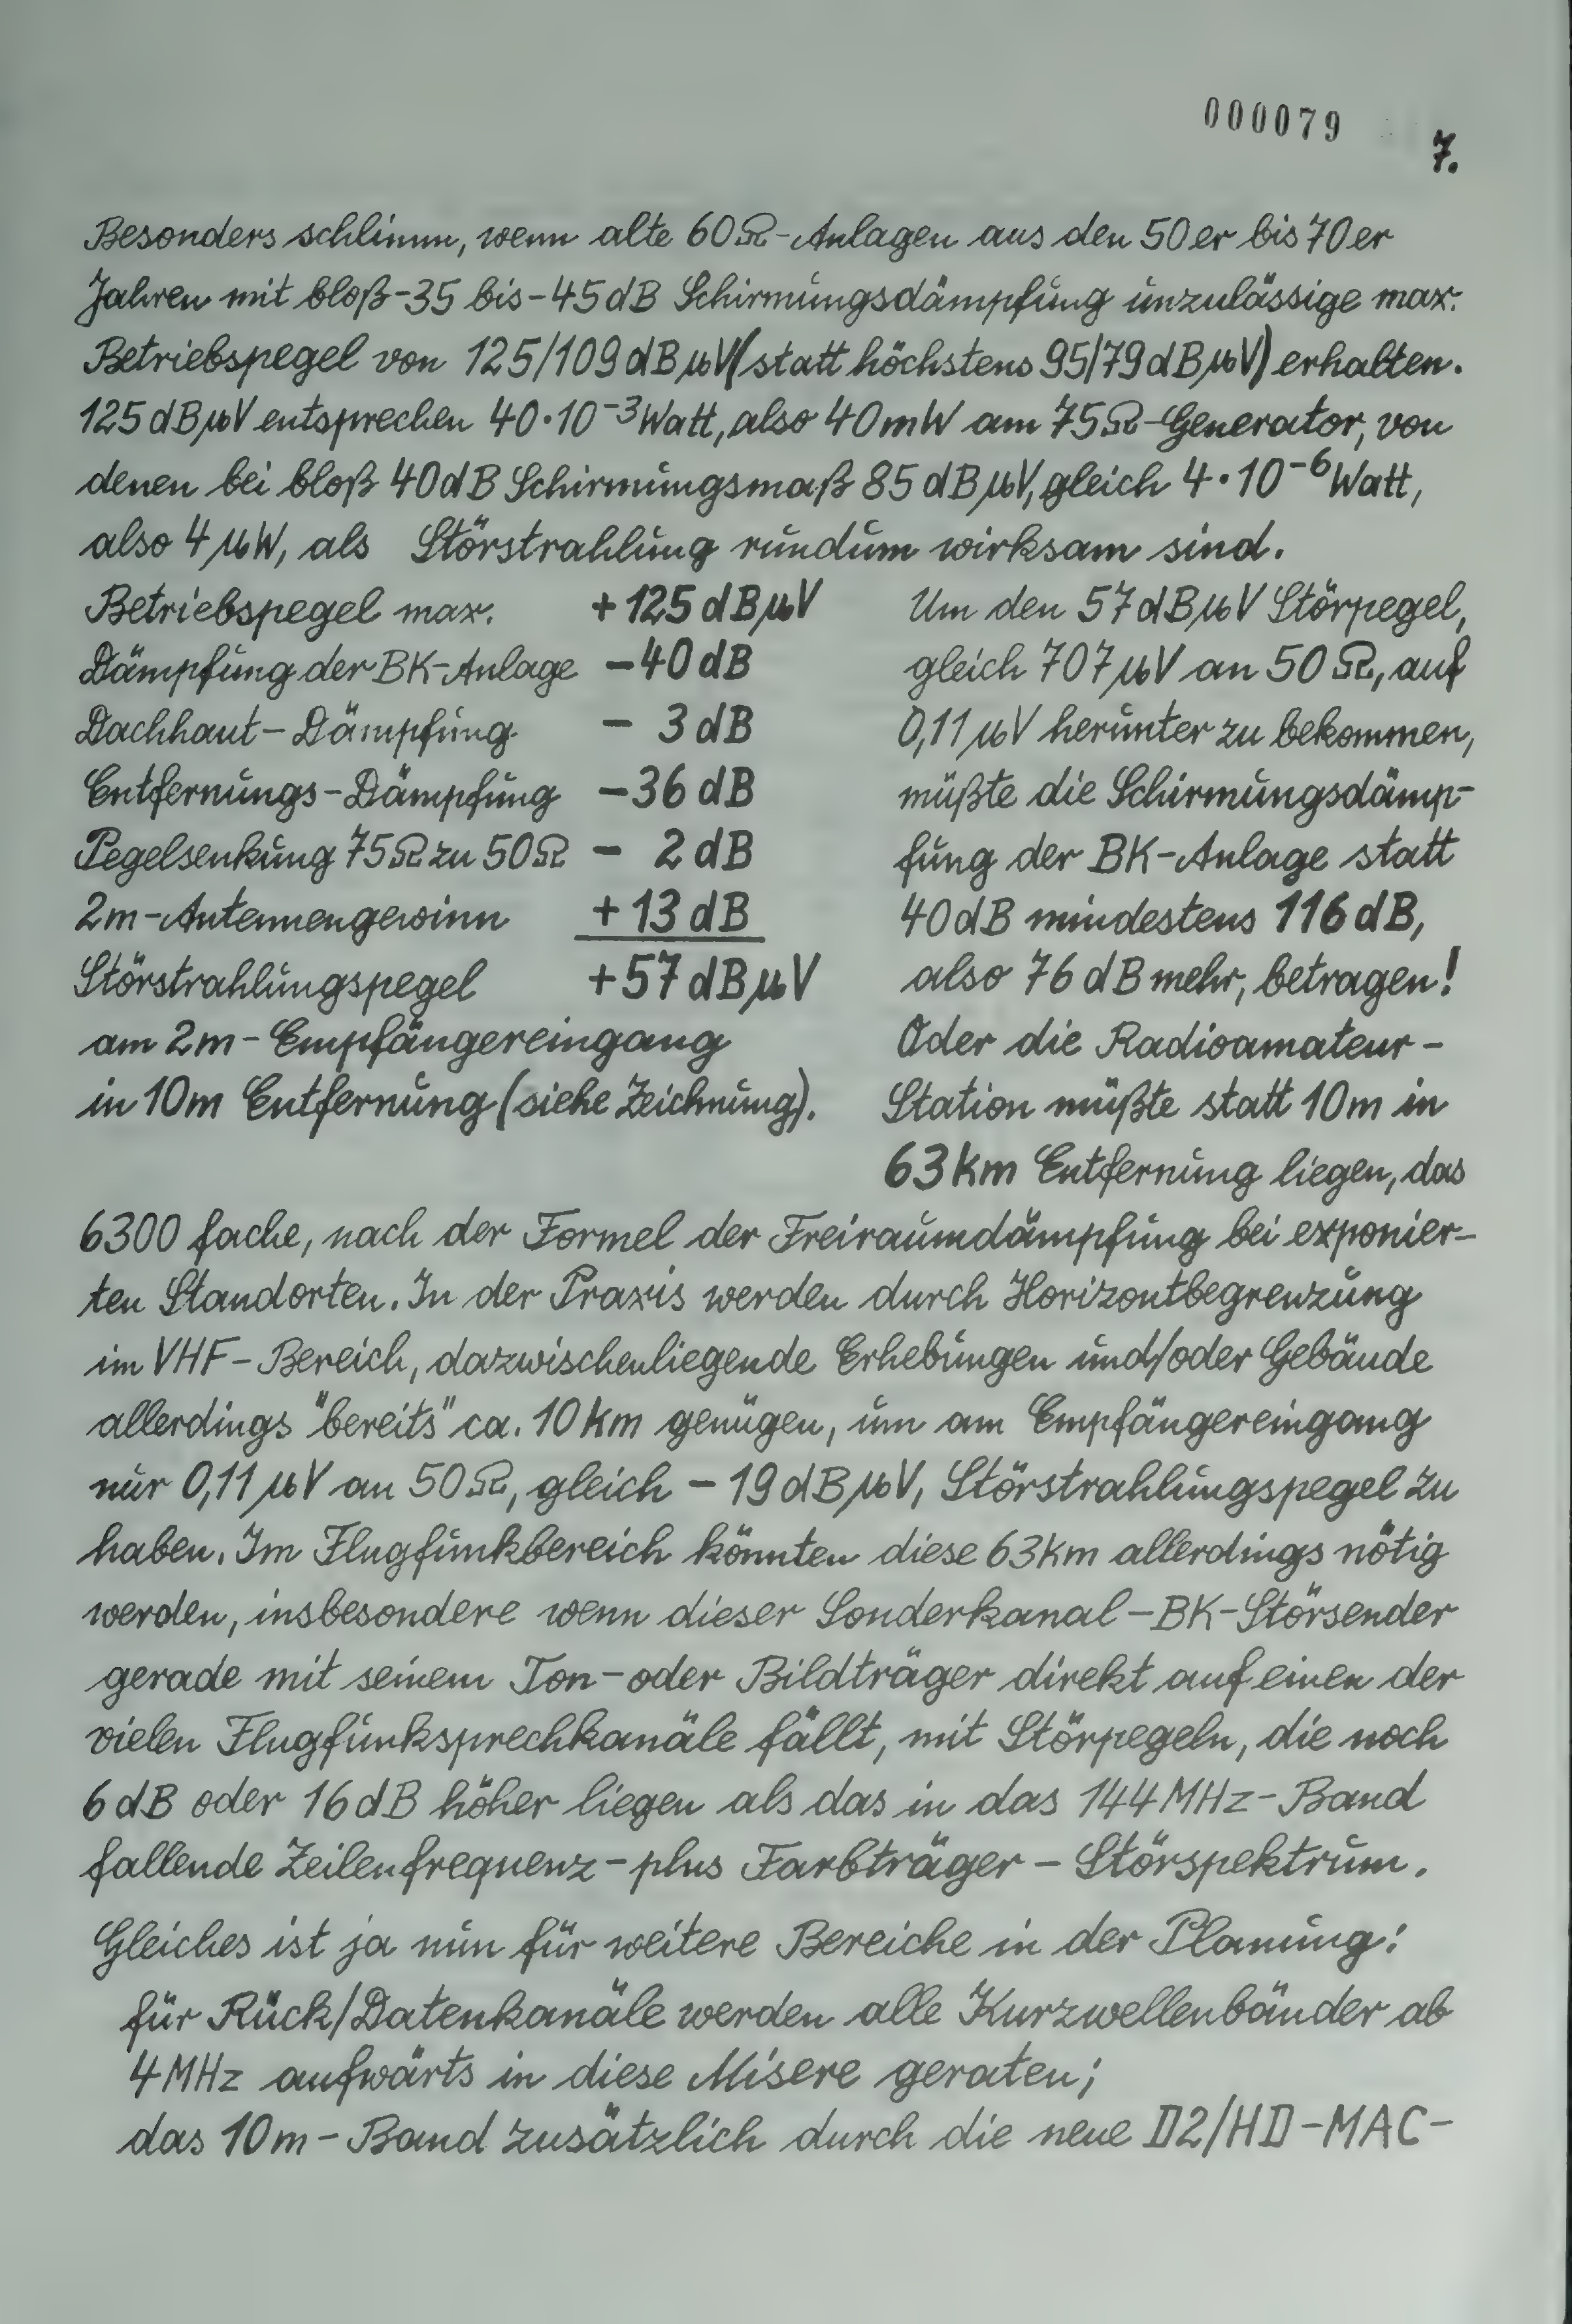 000079
7.
Besonders schlimm, wenn alte 60Ω-Anlagen aus den 50er bis 70er
Jahren mit bloß -35 bis -45dB Schirmungsdämpfung unzulässige max.
Betriebspegel von 125/109dBµV (statt höchstens 95/79dBµV) erhalten.
125dBµV entsprechen 40·10⁻³Watt, also 40mW am 75Ω-Generator, von
denen bei bloß 40dB Schirmungsmaß 85dBµV, gleich 4·10⁻⁶Watt,
also 4µW, als Störstrahlung rundum wirksam sind.
Betriebspegel max. +125dBµV
Dämpfung der BK-Anlage -40dB
Dachhaut-Dämpfung - 3dB
Entfernungs-Dämpfung -36dB
Pegelsenkung 75Ω zu 50Ω - 2dB
2m-Antennengewinn +13dB
Störstrahlungspegel +57dBµV
am 2m-Empfängereingang
in 10m Entfernung (siehe Zeichnung).
Um den 57dBµV Störpegel,
gleich 707µV an 50Ω, auf
0,11µV herunter zu bekommen,
müßte die Schirmungsdämp-
fung der BK-Anlage statt
40dB mindestens 116dB,
also 76dB mehr, betragen!
Oder die Radioamateur-
Station müßte statt 10m in
63km Entfernung liegen, das
6300 fache, nach der Formel der Freiraumdämpfung bei exponier-
ten Standorten. In der Praxis werden durch Horizontbegrenzung
im VHF-Bereich, dazwischenliegende Erhebungen und/oder Gebäude
allerdings "bereits" ca. 10km genügen, um am Empfängereingang
nur 0,11µV an 50Ω, gleich -19dBµV, Störstrahlungspegel zu
haben. Im Flugfunkbereich könnten diese 63km allerdings nötig
werden, insbesondere wenn dieser Sonderkanal-BK-Störsender
gerade mit seinem Ton- oder Bildträger direkt auf einen der
vielen Flugfunksprechkanäle fällt, mit Störpegeln, die noch
6dB oder 16dB höher liegen als das in das 144MHz-Band
fallende Zeilenfrequenz-plus Farbträger-Störspektrum.
Gleiches ist ja nun für weitere Bereiche in der Planung:
für Rück/Datenkanäle werden alle Kurzwellenbänder ab
4MHz aufwärts in diese Misere geraten;
das 10m-Band zusätzlich durch die neue D2/HD-MAC-